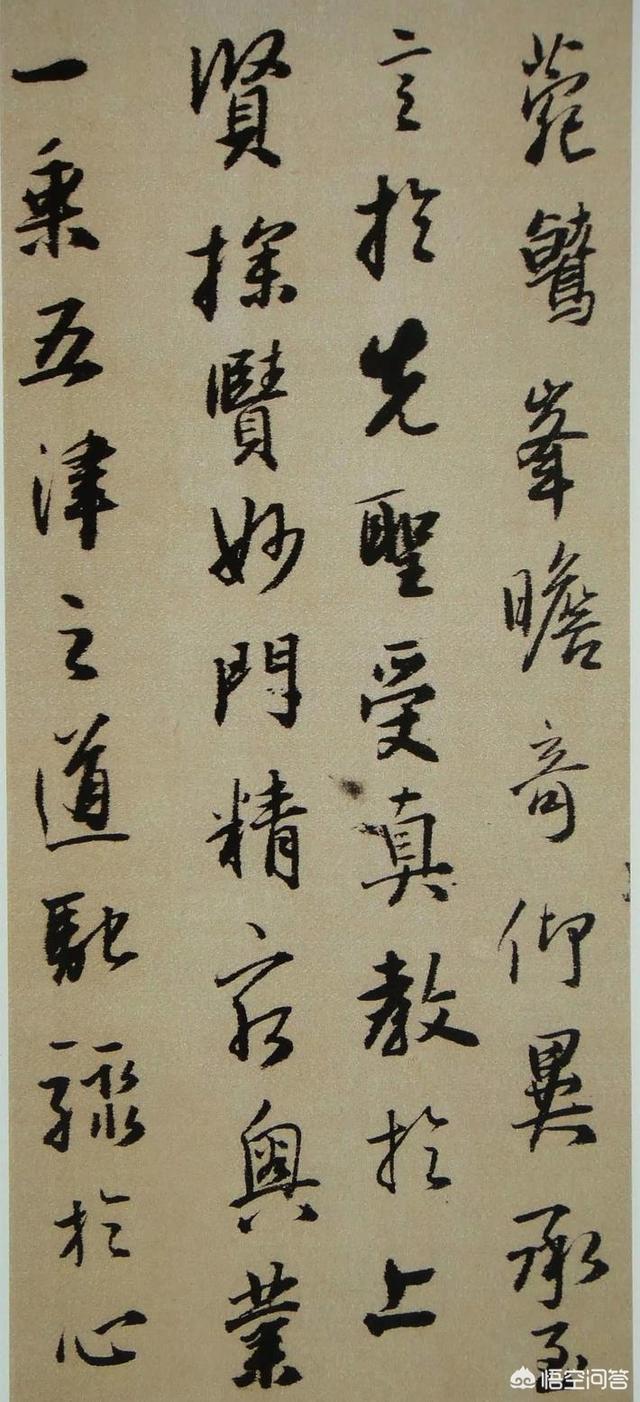 菀鷲峯瞻奇仰異承至
言於先聖受真教於上
賢探賾妙門精窮奧業
一乘五律之道馳驟於心
悟空问答